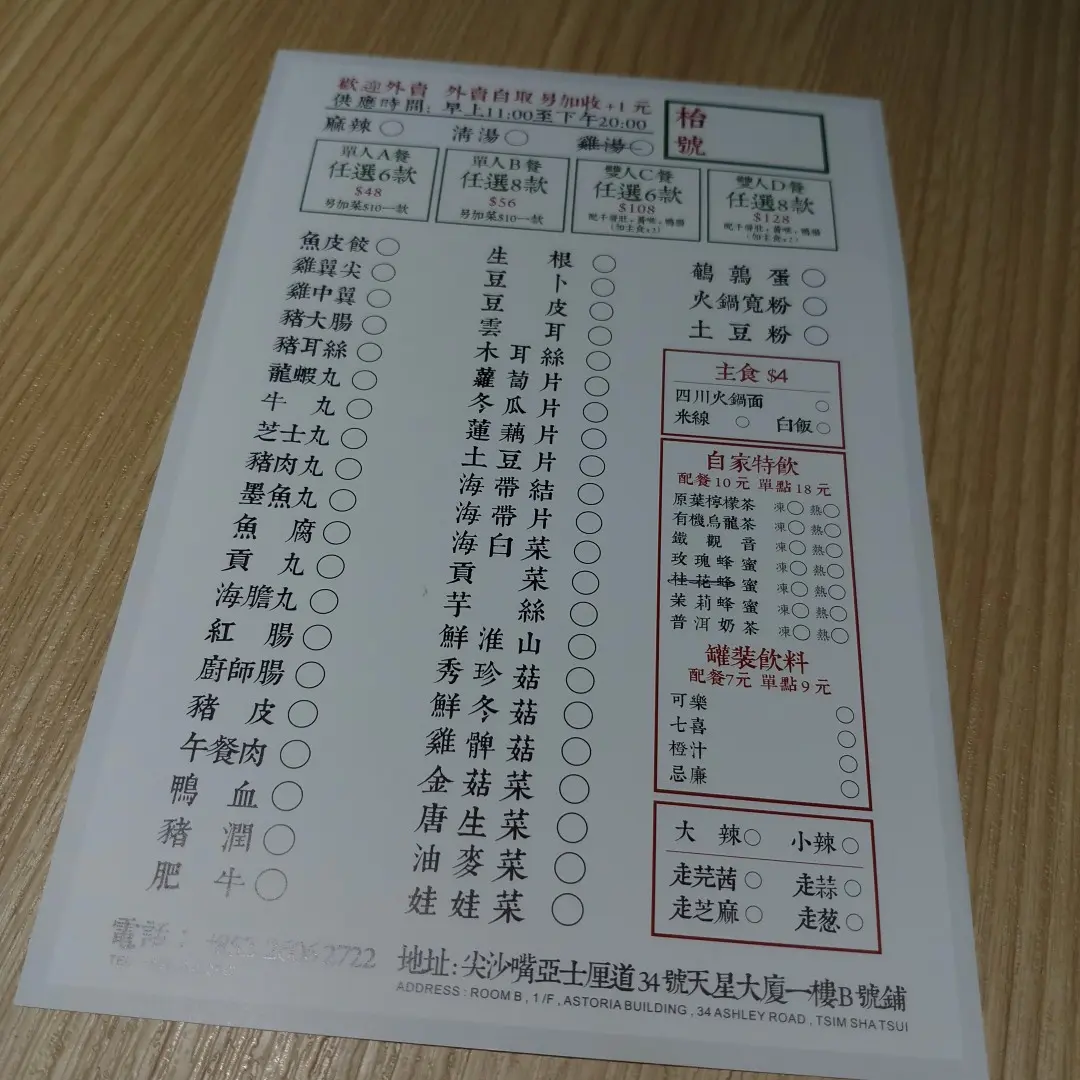 歡迎外賣 外賣自取 另加收+1元
供應時間：早上11:00至下午20:00
枱號
麻辣 清湯 雞湯
單人A餐
任選6款
$48
另加菜$10一款
單人B餐
任選8款
$56
另加菜$10一款
雙人C餐
任選6款
$108
雙人D餐
任選8款
$128
魚皮餃
雞翼尖
雞中翼
豬大腸
豬耳絲
龍蝦丸
牛丸
芝士丸
豬肉丸
墨魚丸
魚腐
貢丸
海膽丸
紅腸
廚師腸
豬皮
午餐肉
鴨血
豬潤
肥牛
生根
豆卜
豆皮
雲耳
木耳絲
蘿蔔片
冬瓜片
蓮藕片
土豆片
海帶結
海帶片
海白菜
貢菜
芋絲
鮮淮山
秀珍菇
鮮冬菇
雞髀菇
金菇菜
唐生菜
油麥菜
娃娃菜
鵪鶉蛋
火鍋寬粉
土豆粉
主食 $4
四川火鍋面
米線 白飯
自家特飲
配餐10元 單點18元
原葉檸檬茶 凍 熱
有機烏龍茶 凍 熱
鐵觀音 凍 熱
玫瑰蜂蜜 凍 熱
桂花蜂蜜 凍 熱
茉莉蜂蜜 凍 熱
普洱奶茶 凍 熱
罐裝飲料
配餐7元 單點9元
可樂
七喜
橙汁
忌廉
大辣 小辣
走芫茜 走蒜
走芝麻 走葱
電話：
2722
地址：尖沙嘴亞士厘道34號天星大廈一樓B號鋪
ADDRESS : ROOM B , 1/F , ASTORIA BUILDING , 34 ASHLEY ROAD , TSIM SHA TSUI